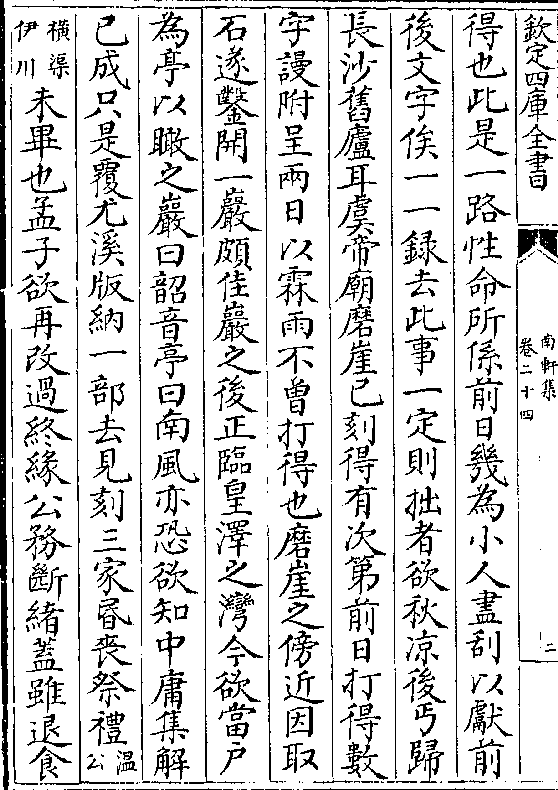 欽定四庫全書
南軒集
卷二十四
二
得也此是一路性命所係前日幾為小人盡刮以獻前
後文字俟一一録去此事一定則拙者欲秋凉後丐歸
長沙舊廬耳虞帝廟磨崖已刻得有次第前日打得數
字謾附呈兩日以霖雨不曾打得也磨崖之傍近因取
石遂鑿開一巖頗佳巖之後正臨皇澤之灣今欲當户
為亭以瞰之巖曰韶音亭曰南風亦恐欲知中庸集解
已成只是覆尤溪版納一部去見刻三家昬喪祭禮温公
横渠伊川未畢也孟子欲再改過終緣公務斷緒蓋雖退食